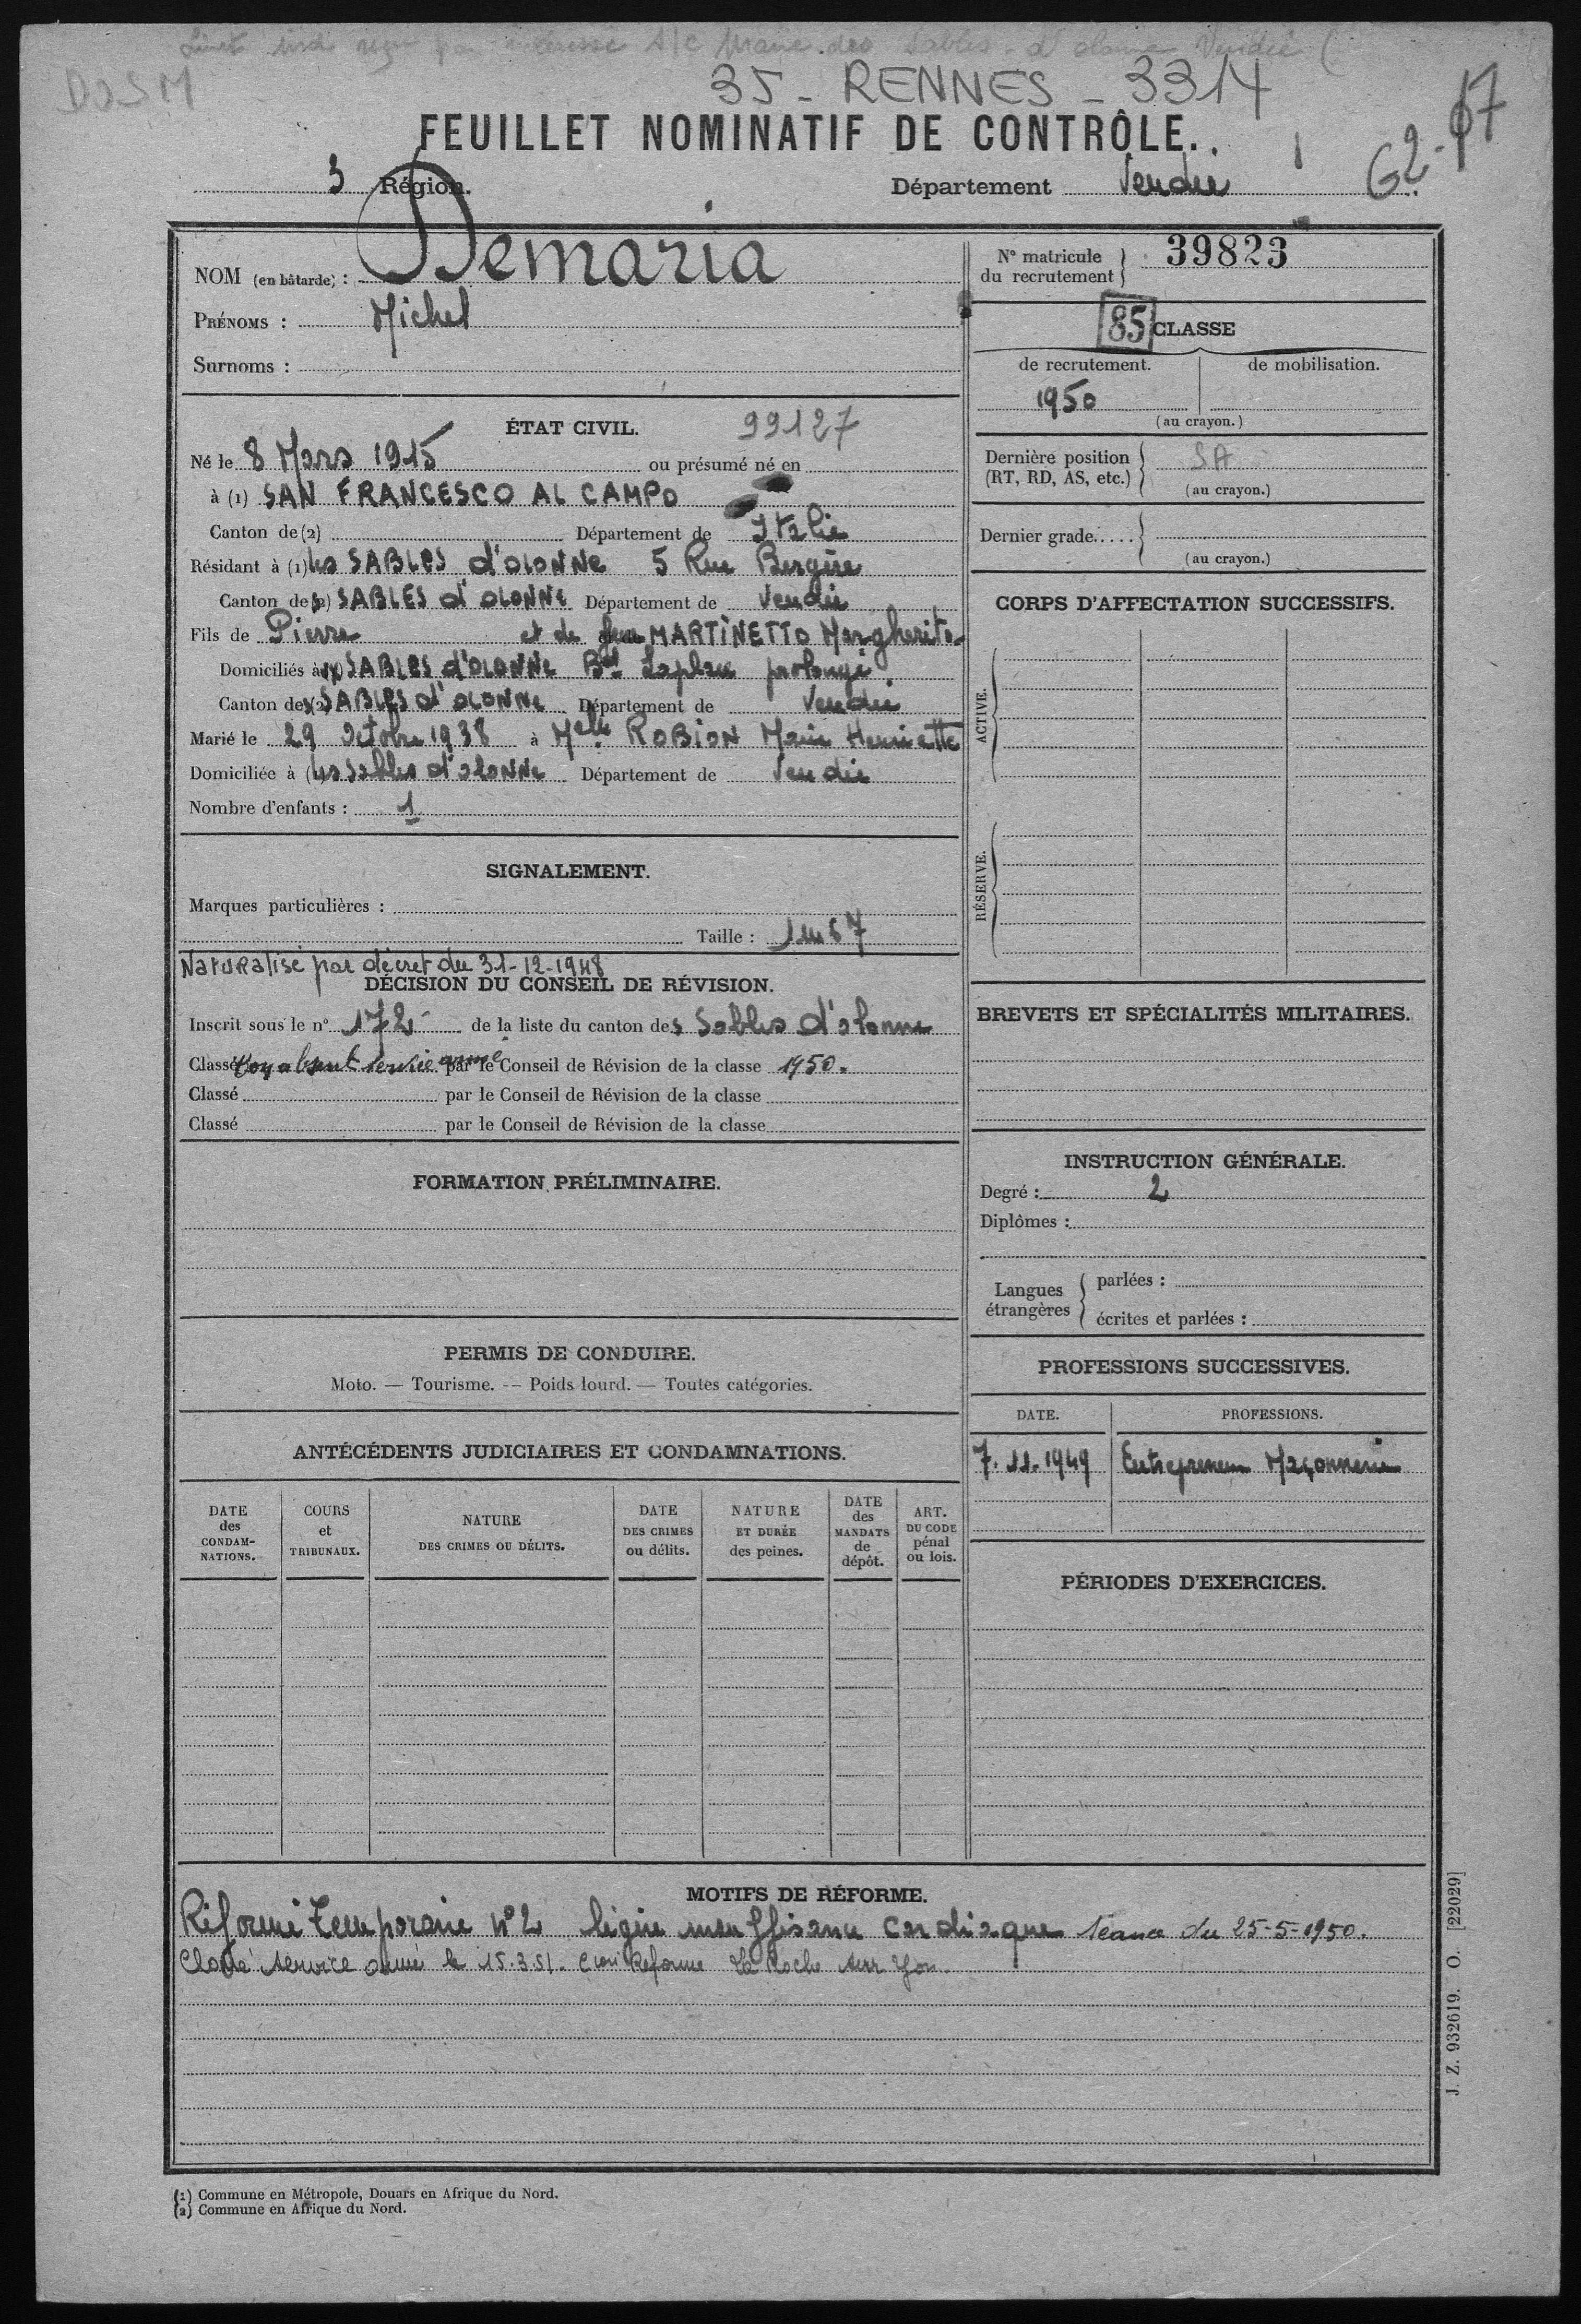 Livret ind reçu par intéressé S/C Mairie des Sables d'olonne Vendée
DOSM
35 - RENNES - 3314
FEUILLET NOMINATIF DE CONTRÔLE.
G2-
3 Région. Département Vendée
NOM (en bâtarde) : Demaria
PRÉNOMS : Michel
Surnoms :
ÉTAT CIVIL. 99127
Né le 8 Mars 1915 ou présumé né en
à (1) SAN FRANCESCO AL CAMPO
Canton de (2) Département de Italie
Résidant à (1) les SABLES d'OLONNE 5 Rue Bergère
Canton des (2) SABLES d'OLONNE Département de Vendée
Fils de Pierre et de feue MARTINETTO Margherita
Domiciliés à SABLES d'OLONNE Bd Laplace prolongé
Canton des (2) SABLES d'OLONNE Département de Vendée
Marié le 29 Octobre 1938 à Melle ROBION Marie Henriette
Domiciliée à les Sables d'OLONNE Département de Vendée
Nombre d'enfants : 1
SIGNALEMENT.
Marques particulières :
Taille : 1m67
Naturalisé par décret du 31-12-1948
DÉCISION DU CONSEIL DE RÉVISION.
Inscrit sous le n° 172 de la liste du canton des Sables d'olonne
Classé bon absent service armé par le Conseil de Révision de la classe 1950.
Classé par le Conseil de Révision de la classe
Classé par le Conseil de Révision de la classe
FORMATION PRÉLIMINAIRE.
PERMIS DE CONDUIRE.
Moto. — Tourisme. — Poids lourd. — Toutes catégories.
ANTÉCÉDENTS JUDICIAIRES ET CONDAMNATIONS.
DATE des CONDAM-NATIONS.
COURS et TRIBUNAUX.
NATURE DES CRIMES OU DÉLITS.
DATE DES CRIMES ou délits.
NATURE ET DURÉE des peines.
DATE des MANDATS de dépôt.
ART. DU CODE pénal ou lois.
N° matricule du recrutement } 39823
85 CLASSE
de recrutement. de mobilisation.
1950
(au crayon.)
Dernière position (RT, RD, AS, etc.) } SA
(au crayon.)
Dernier grade..... {
(au crayon.)
CORPS D'AFFECTATION SUCCESSIFS.
ACTIVE.
RÉSERVE.
BREVETS ET SPÉCIALITÉS MILITAIRES.
INSTRUCTION GÉNÉRALE.
Degré : 2
Diplômes :
Langues étrangères { parlées :
écrites et parlées :
PROFESSIONS SUCCESSIVES.
DATE. PROFESSIONS.
7.11.1949 Entrepreneur Maçonnerie
PÉRIODES D'EXERCICES.
MOTIFS DE RÉFORME.
Réformé Temporaire N°2 légère insuffisance cardiaque séance du 25-5-1950.
Classé service armé le 15.3.51. Cion Réforme La Roche sur Yon.
(1) Commune en Métropole, Douars en Afrique du Nord.
(2) Commune en Afrique du Nord.
J. Z. 932619. O. [22029]